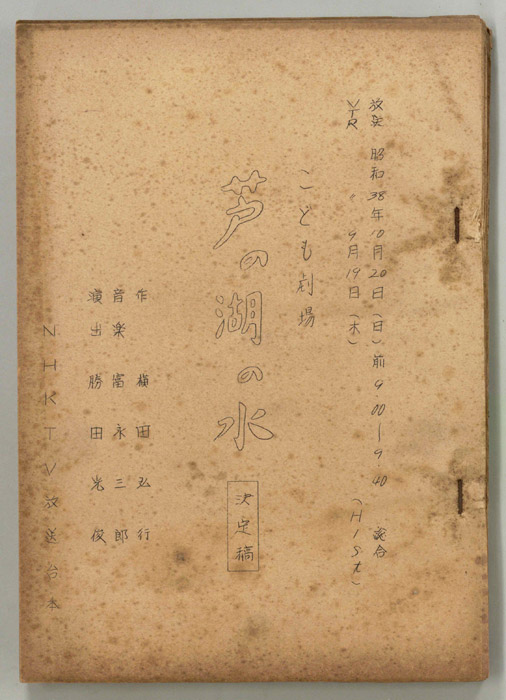 放送 昭和38年10月20日(日)前9.00―9.40 総合
VTR 〃 9月19日(木) (H1St)
こども劇場
芦の湖の水
決定稿
作 横田弘行
音楽 富永三郎
演出 勝田光俊
NHKTV放送台本